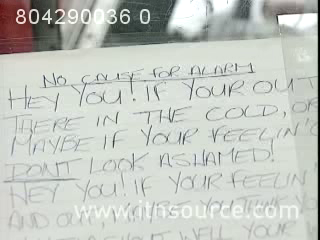 804290036 0
NO CAUSE FOR ALARM
HEY YOU! IF YOUR OUT
THERE IN THE COLD, OR
MAYBE IF YOUR FEELIN'
DONT LOOK ASHAMED!
HEY YOU! IF YOUR FEELIN
www.itnsource.com
AND
WELL YOUR